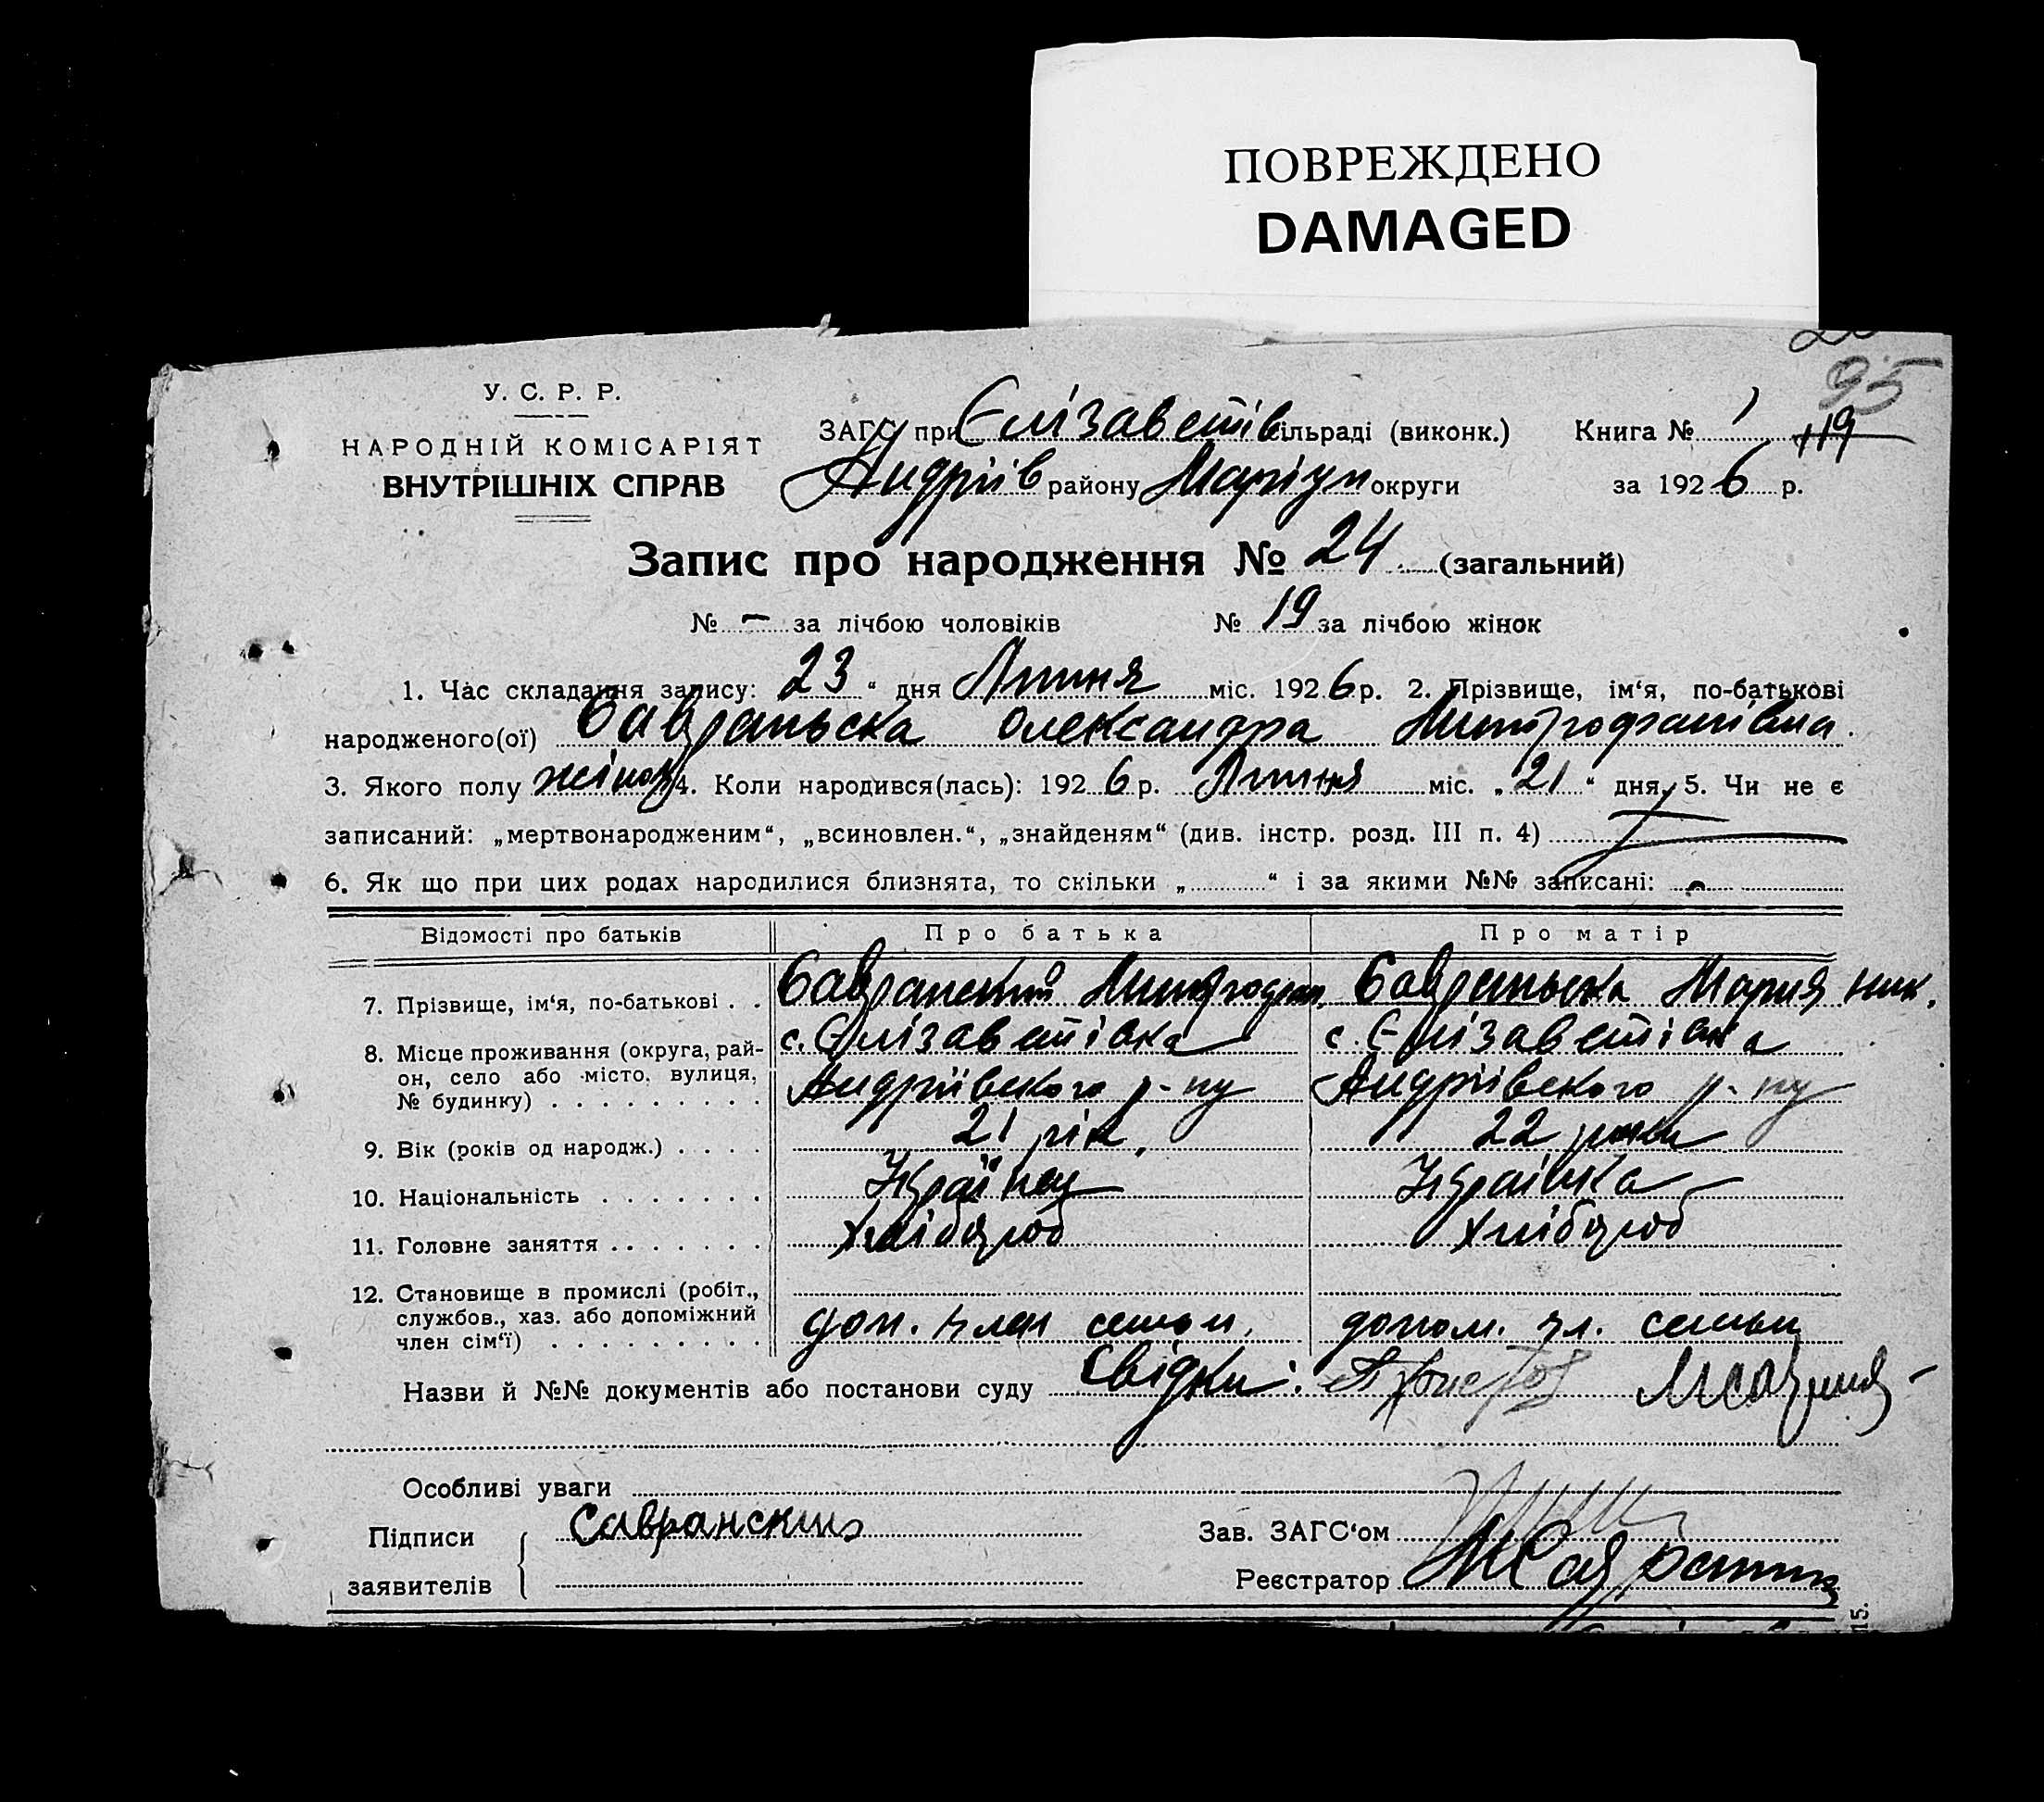 ПОВРЕЖДЕНО
DAMAGED
95
У. С. Р. Р.
НАРОДНІЙ КОМІСАРІЯТ
ВНУТРІШНІХ СПРАВ
ЗАГС при Єлізаветів сільраді (виконк.) Книга № 1 119
Андріїв району Маріуп округи за 1926 р.
Запис про народження № 24 (загальний)
№ - за лічбою чоловіків № 19 за лічбою жінок
1. Час складання запису: 23 " дня Липня міс. 1926 р. 2. Прізвище, ім'я, по-батькові
народженого(ої) Савраньска Олександра Митрофанівна.
3. Якого полу жіноч 4. Коли народився(лась): 1926 р. Липня міс. „21" дня, 5. Чи не є
записаний: „мертвонародженим", „всиновлен.", „знайденям" (див. інстр. розд. III п. 4)
6. Як що при цих родах народилися близнята, то скільки „ " і за якими №№ записані: -
Відомості про батьків Про батька Про матір
7. Прізвище, ім'я, по-батькові . . Савранский Митрофан. Савраньска Мария Ник.
8. Місце проживання (округа, рай-
он, село або місто, вулиця,
№ будинку) . . . . . . . . .
с. Єлізаветівка
Андріївского р-ну
с. Єлізаветівка
Андріївского р-ну
9. Вік (років од народж.) . . . . 21 рік, 22 роки
10. Національність . . . . . . . Українец Українка
11. Головне заняття . . . . . . . Хлібороб Хлібороб
12. Становище в промислі (робіт.,
службов., хаз. або допоміжний
член сім'ї) . . . . . . . . .
доп. член семьи. допом. чл. семьи
Назви й №№ документів або постанови суду Свідки:
Особливі уваги
Підписи
заявителів
Савранский
Зав. ЗАГС'ом
Реєстратор
15.